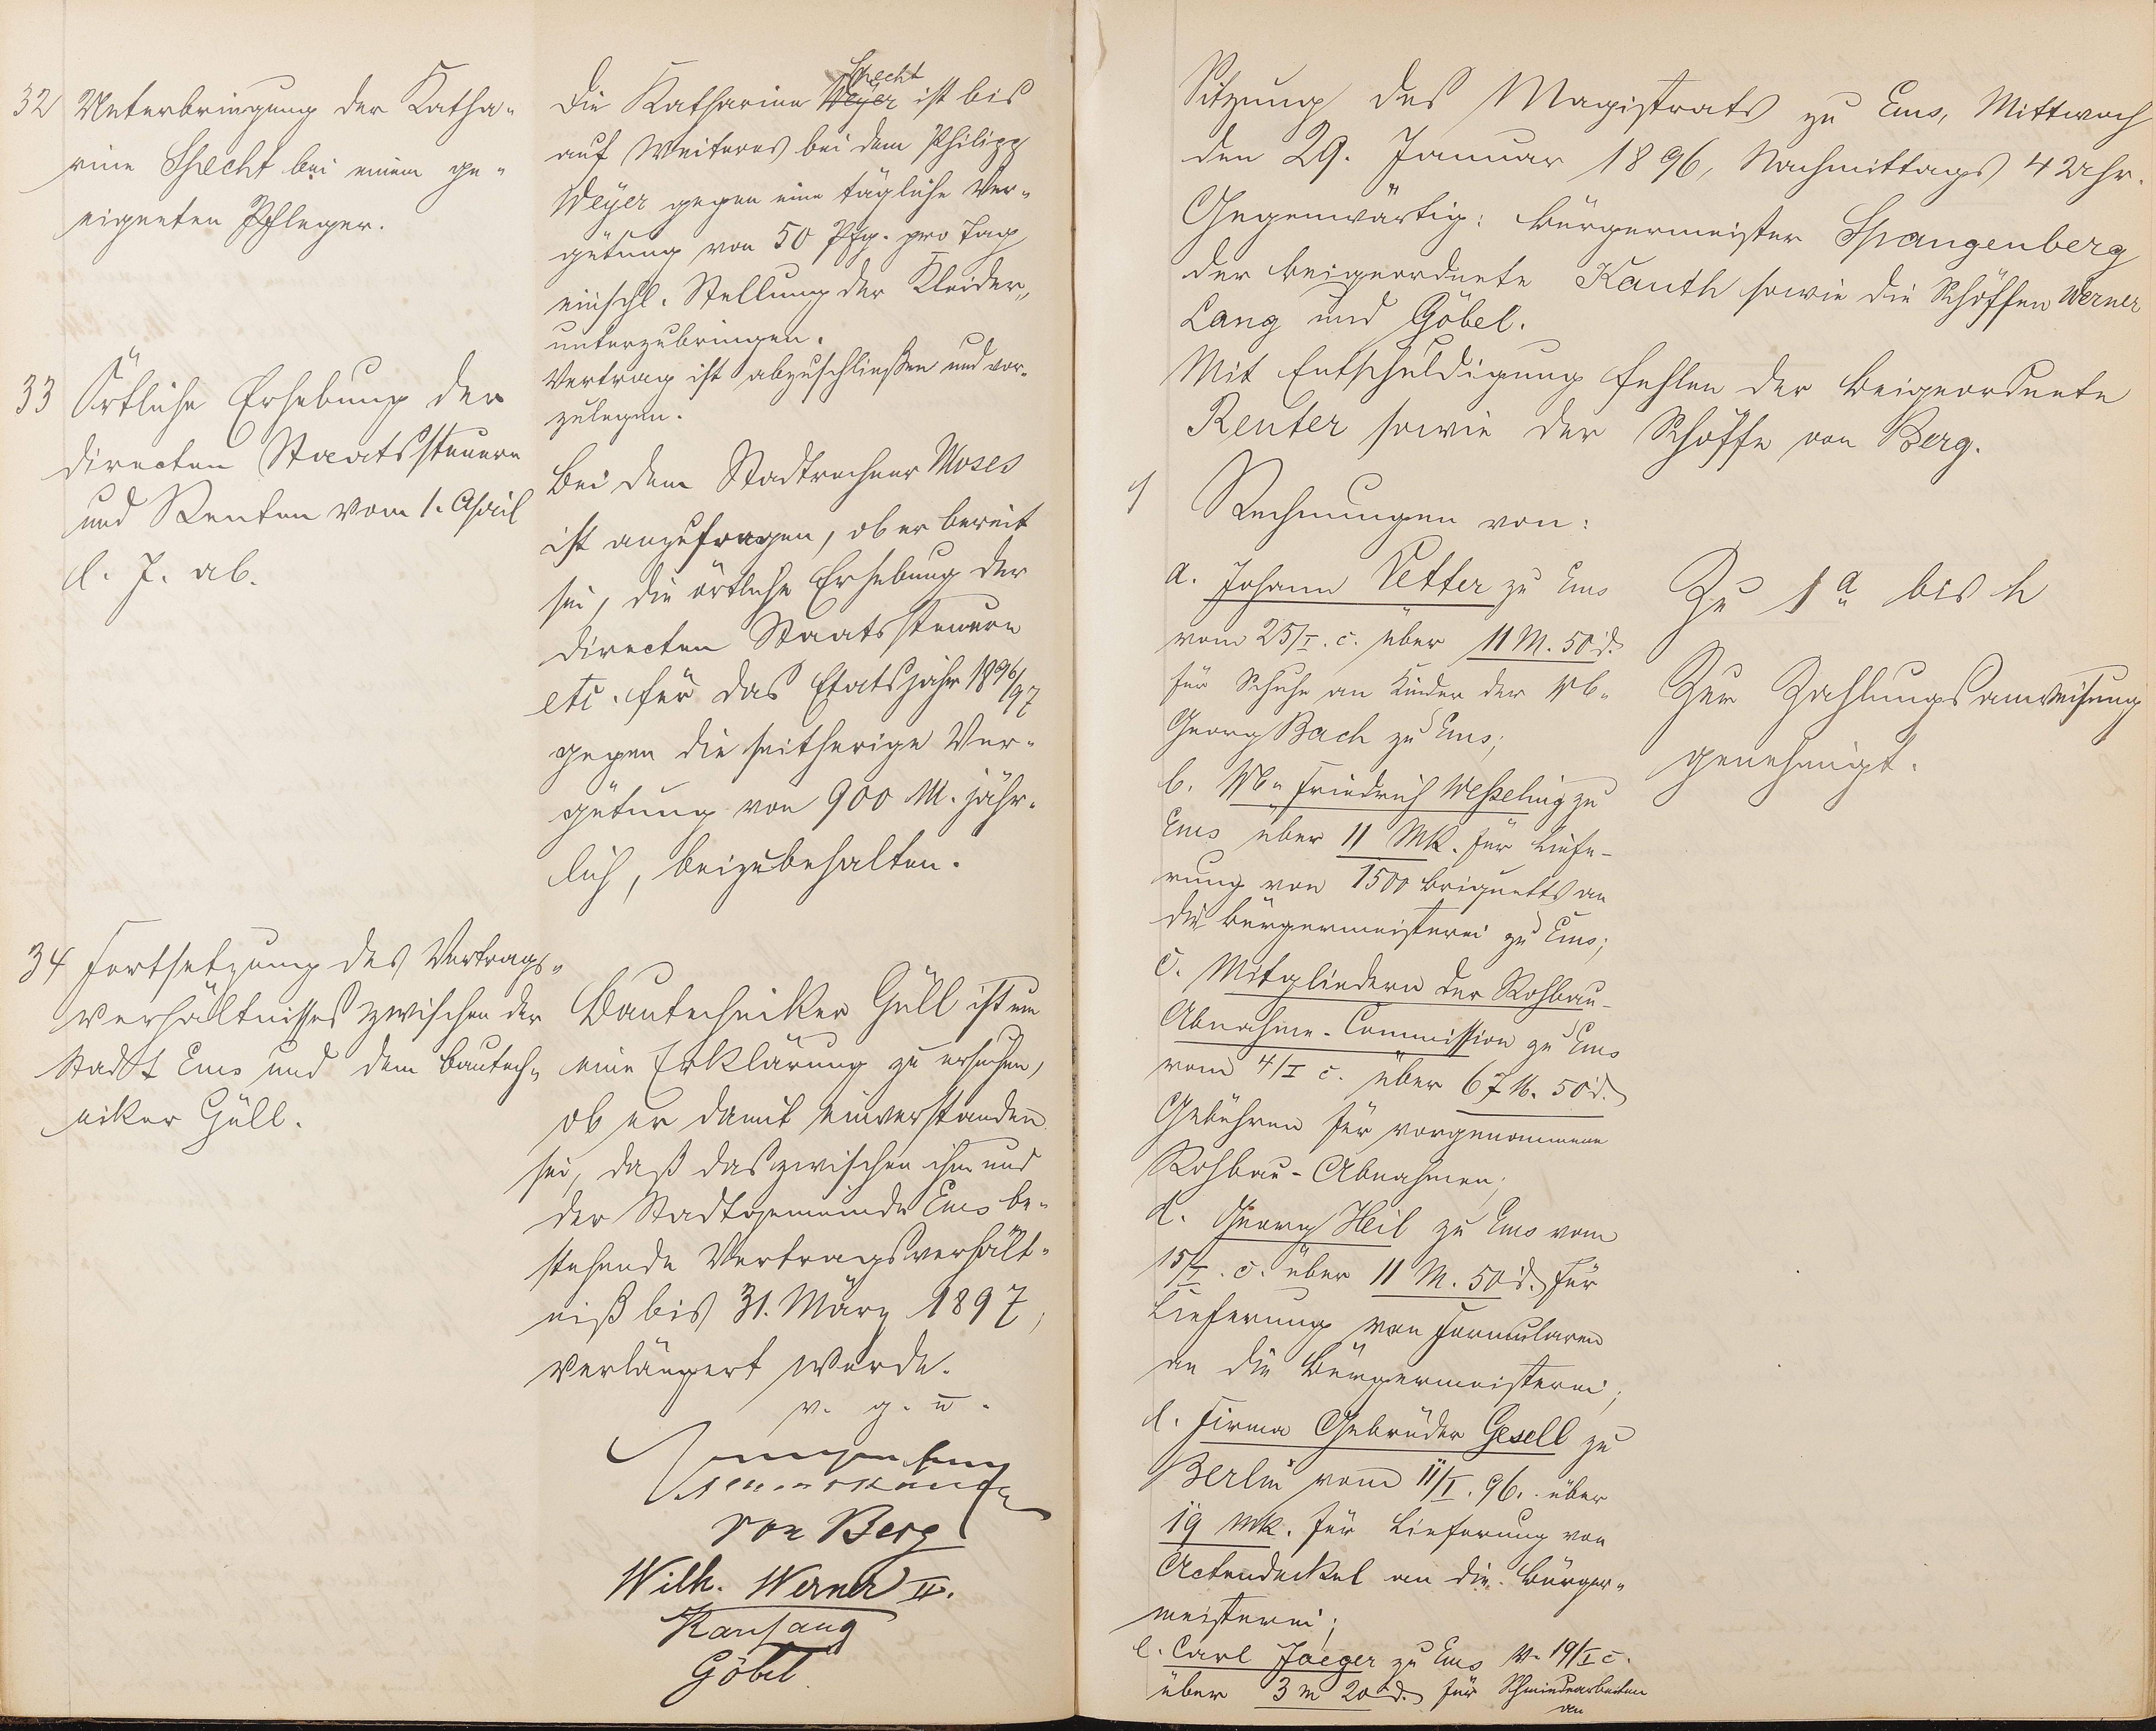 32 Unterbringung der Katha-
rine Specht bei einem ge-
eigneten Pfleger.
Die Katharina Weyer Specht ist bis
auf Weiteres bei dem Philipp
Weyer gegen eine tägliche Ver-
gütung von 50 Pfg. pro Tag
einschl. Stellung der Kleider,
unterzubringen.
Vertrag ist abzuschließen und vor-
zulegen.
33 Örtliche Erhebung der
directen Staatssteuern
und Renten vom 1. April
l. J. ab.
Bei dem Stadtrechner Moses
ist anzufragen, ob er bereit
sei, die örtliche Erhebung der
directen Staatssteuern
etc. für das Etatsjahr 1896/97
gegen die seitherige Ver-
gütung von 900 M. jähr-
lich, beizubehalten.
34 Fortsetzung des Vertrags-
verhältnisses zwischen der
Stadt Ems und dem Bautech-
niker Güll.
Bautechniker Güll ist um
eine Erklärung zu ersuchen,
ob er damit einverstanden
sei, daß das zwischen ihm und
der Stadtgemeinde Ems be-
stehende Vertragsverhält-
niß bis 31. März 1897,
verlängert werde.
v. g. u.
Spangenberg
von Berg
Wilh. Werner II.
Göbel
Sitzung des Magistrats zu Ems, Mittwoch
den 29. Januar 1896, Nachmittags 4 Uhr.
Gegenwärtig: Bürgermeister Spangenberg
der Beigeordnete Kauth sowie die Schöffen Werner
Lang und Göbel.
Mit Entschuldigung fehlen der Beigeordnete
Reuter sowie der Schöffe von Berg.
1 Rechnungen von:
a. Johann Vetter zu Ems
vom 25/I. c. über 11 M. 50 d.
für Schuhe an Kinder der
Georg Bach zu Ems;
b. Friedrich Wesseling zu
Ems über 11 Mk. für Liefe-
rung von 1500 Briquetts an
die Bürgermeisterei zu Ems;
c. Mitgliedern der Rohbau-
Abnahme-Commission zu Ems
vom 4/I c. über 67 M. 50 d.
Gebühren für vorgenommene
Rohbau-Abnahmen;
d. Georg Heil zu Ems vom
15/I. c. über 11 M. 50 d. für
Lieferung von Formularen
an die Bürgermeisterei;
e. Firma Gebrüder Gesell zu
Berlin vom 11/I. 96. über
19 Mk. für Lieferung von
Actendeckel an die Bürger-
meisterei;
e. Carl Jaeger zu Ems v. 19/I c.
über 3 M 20 d. für Schmiedearbeiten
an
Zu 1 a bis h
Zur Zahlungsanweisung
genehmigt.